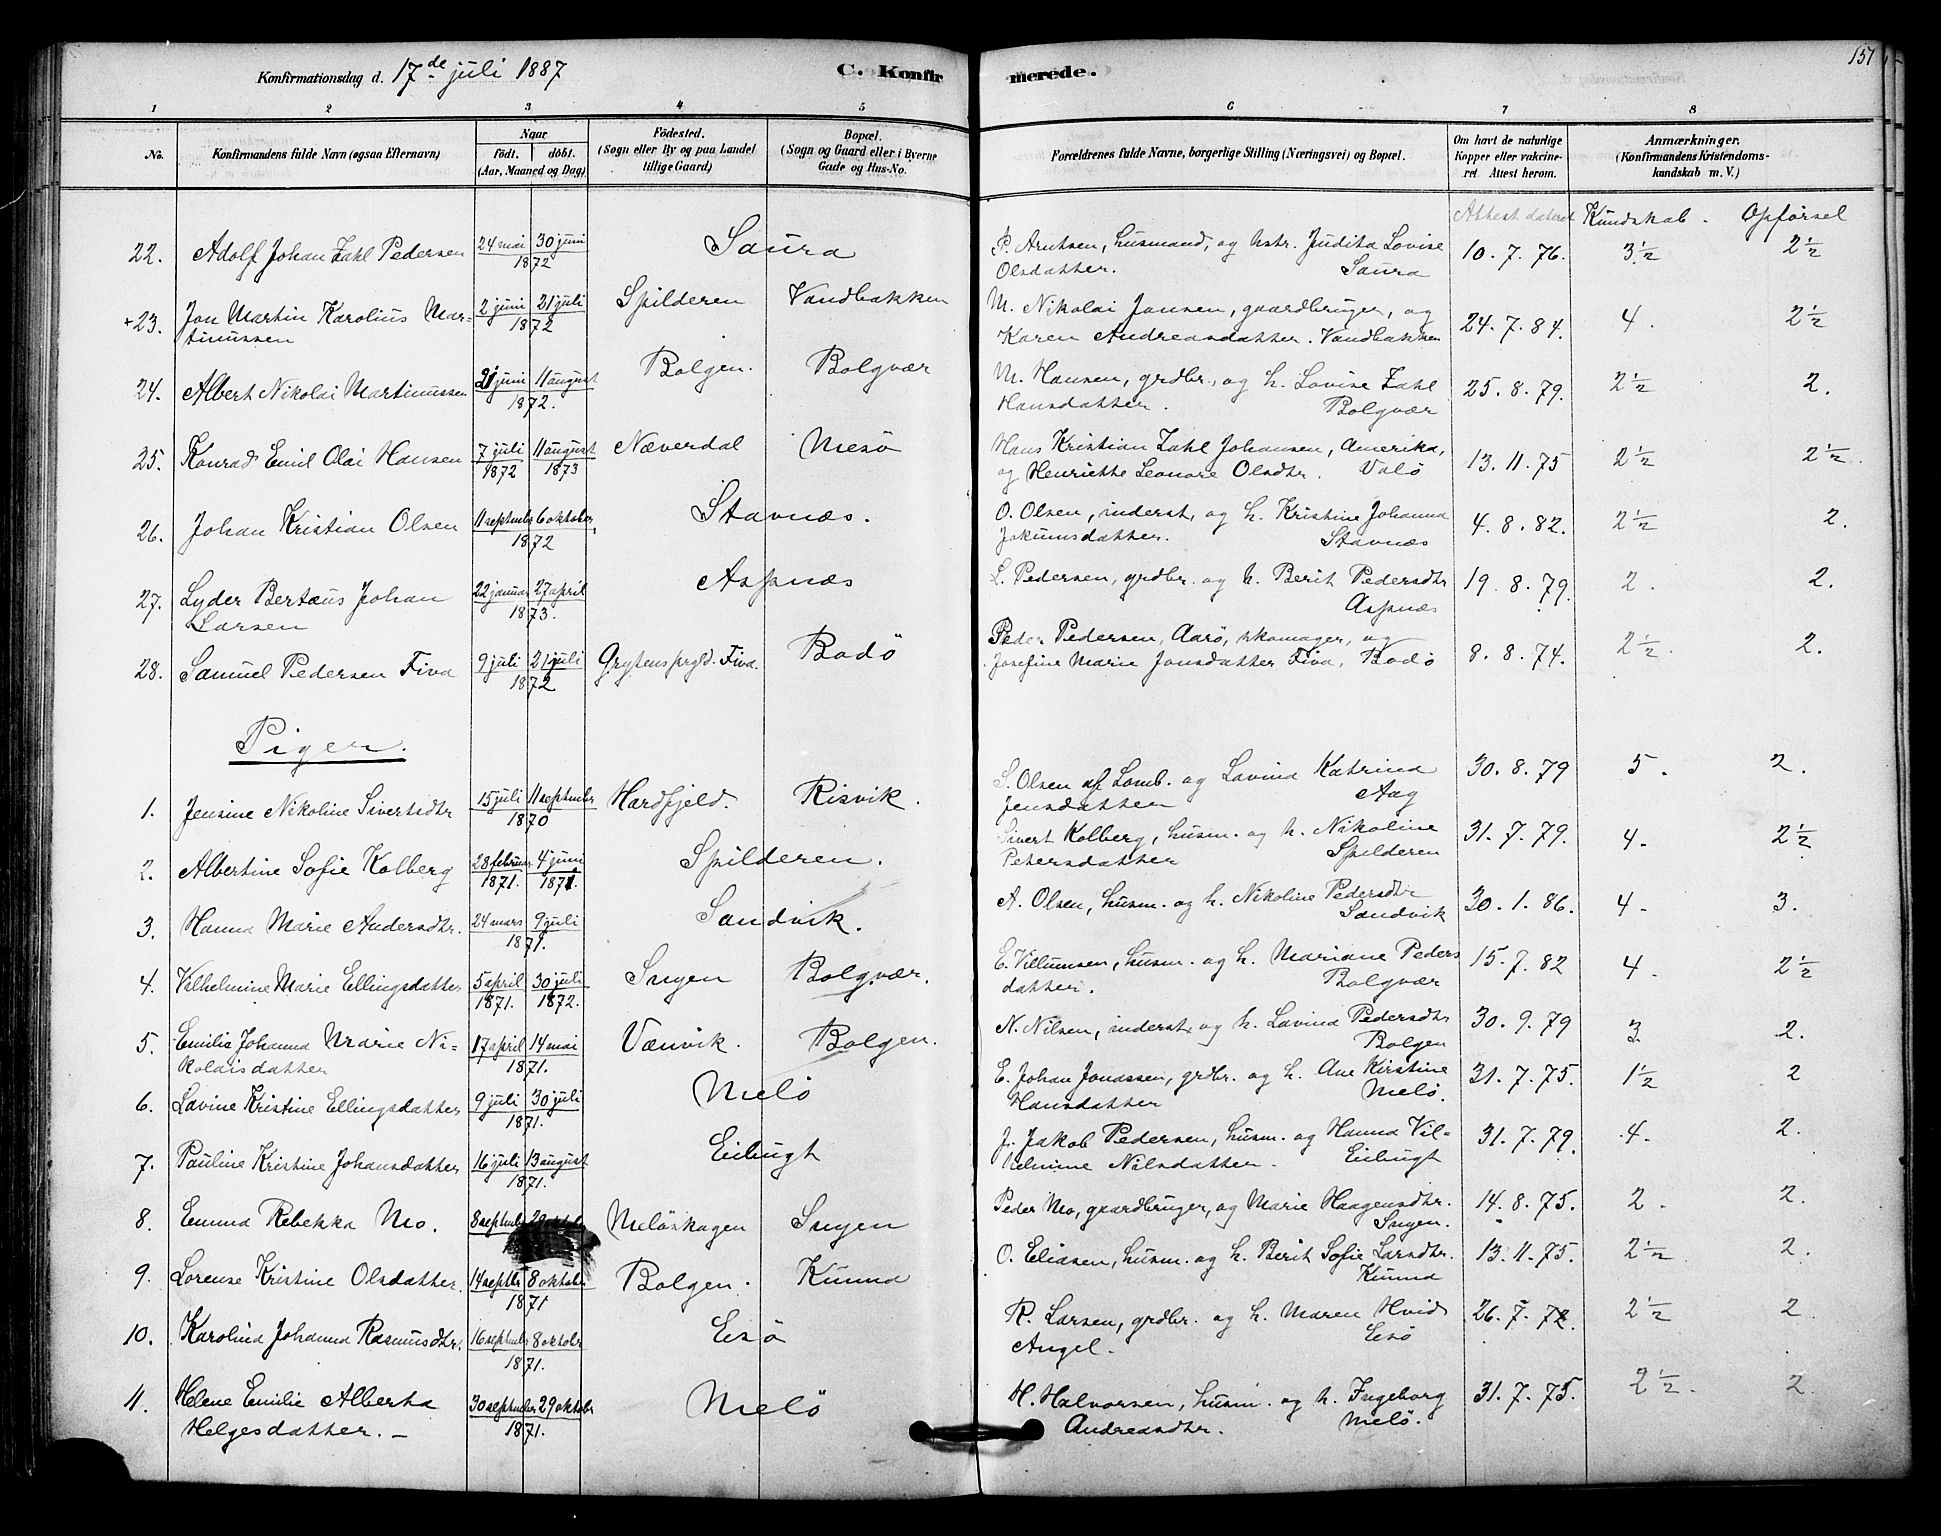 Konfirmationsdag d. 17de juli 1887 C. Konfir merede. 151
1 2 3 4 5 6 7 8
No. Konfirmandens fulde Navn (ogsaa Efternavn) Naar født. døbt. (Aar, Maaned og Dag) Fødested. (Sogn eller By og paa Landet tillige Gaard) Bopæl. (Sogn og Gaard eller i Byerne Gade og Hus-No. Forældrenes fulde Navne, borgerlige Stilling (Næringsvei) og Bopæl. Om havt de naturlige Kopper eller vakcineret. Attest herom. Anmærkninger. (Konfirmandens Kristendomskundskab m. V.)
Attest dateret Kundskab. Opførsel
22. Adolf Johan Zahl Pedersen 24 mai 30 juni 1872 Saura P. Arntsen, husmand, og hstr. Judita Lovise 10.7.76. 3 1/2 2 1/2
Olsdatter. Saura
+23. Jon Martin Karolius Mar- 2 juni 21 juli 1872 Spilderen Vandbakken M. Nikolai Jonsen, gaardbruger, og 24.7.84. 4. 2 1/2
tinussen Karen Andreasdatter. Vandbakken
24. Albert Nikolai Martinussen 21 juni 11 august 1872. Bolgen. Bolgvær M. Hansen, grdbr., og h. Lovise Zahl 25.8.79. 2 1/2 2.
Hansdatter. Bolgvær
25. Konrad Emil Olai Hansen 7 juli 1872 11 august 1873 Næverdal Mesö Hans Kristian Zahl Johansen, Amerika, 13.11.75 2 1/2 2 1/2.
og Henriette Leonore Olsdtr. Valö
26. Johan Kristian Olsen 11 september 6 oktober 1872 Stavnæs. O. Olsen, inderst, og h. Kristine Johanna 4.8.82. 2 1/2 2.
Jakumsdatter. Stavnæs
27. Lyder Bertæus Johan 22 januar 27 april 1873. Aspnæs L. Pedersen, grdbr. og h. Berit Pedersdtr 19.8.79. 2. 2.
Larsen Aspnæs
28. Samuel Pedersen Fiva 9 juli 21 juli 1872 Grytens prgld. Fiva. Bodö Peder Pedersen, Aarö, skomager, og 8.8.74. 2 1/2. 2.
Josefine Marie Jonsdatter Fiva, Bodö
Piger.
1. Jensine Nikoline Sivertsdtr 15 juli 11 september 1870 Hardfjeld. Risvik. S. Olsen af Lomb. og Lavina Katrina 30.8.79 5. 2.
Jensdatter Aag
2. Albertine Sofie Kolberg 28 februar 1871. 4 juni 1871. Spilderen. Sivert Kolberg, husm. og h. Nikoline 31.7.79. 4. 2 1/2
Petersdatter Spilderen
3. Hanna Marie Andersdtr. 24 mars 9 juli 1871. Sandvik. A. Olsen, husm. og h. Nikoline Pedersdtr 30.1.86. 4. 3.
Sandvik
4. Vilhelmine Marie Ellingsdatter 5 april 1871. 30 juli 1872. Engen Bolgvær. E. Villumsen, husm. og h. Mariane Peders 15.7.82 4. 2 1/2
datter. Bolgvær
5. Emilie Johanna Marie Ni- 17 april 14 mai 1871. Vænvik. Bolgen. N. Nilsen, inderst, og h. Lavina Pedersdtr 30.9.79 3. 2.
kolaisdatter Bolgen
6. Lavine Kristine Ellingsdatter 9 juli 30 juli 1871. Melö E. Johan Jonassen, grdbr. og h. Ane Kirstine 31.7.75. 1 1/2 2
Hansdatter Melö.
7. Pauline Kristine Johansdatter 16 juli 13 august 1871. Eilugt J. Jakob Pedersen, husm. og Hanna Vil- 31.7.79. 4. 2.
helmine Nilsdatter. Eilugt
8. Emma Rebekka Mo. 8 september oktober Melöskagen Engen Peder Mo, gaardbruger, og Marie Haagensdtr. 14.8.75. 2. 2.
Engen.
9. Lorense Kristine Olsdatter. 14 septbr 8 oktober 1871 Bolgen. Kunna O. Eliasen, husm. og h. Berit Sofie Larsdtr. 13.11.75. 2 1/2 2.
Kunna
10. Karolina Johanna Rasmusdtr. 16 septmbr 8 oktober 1871. Esö R. Larsen, grdbr. og h. Maren Hvid 26.7.72. 2 1/2 2
Angel. Esö
11. Helene Emilie Alberta 30 september 29 oktober 1871. Melö H. Halvorsen, husm. og h. Ingeborg 31.7.75. 2 1/2. 2
Helgesdatter. – Andreasdtr. Melö.